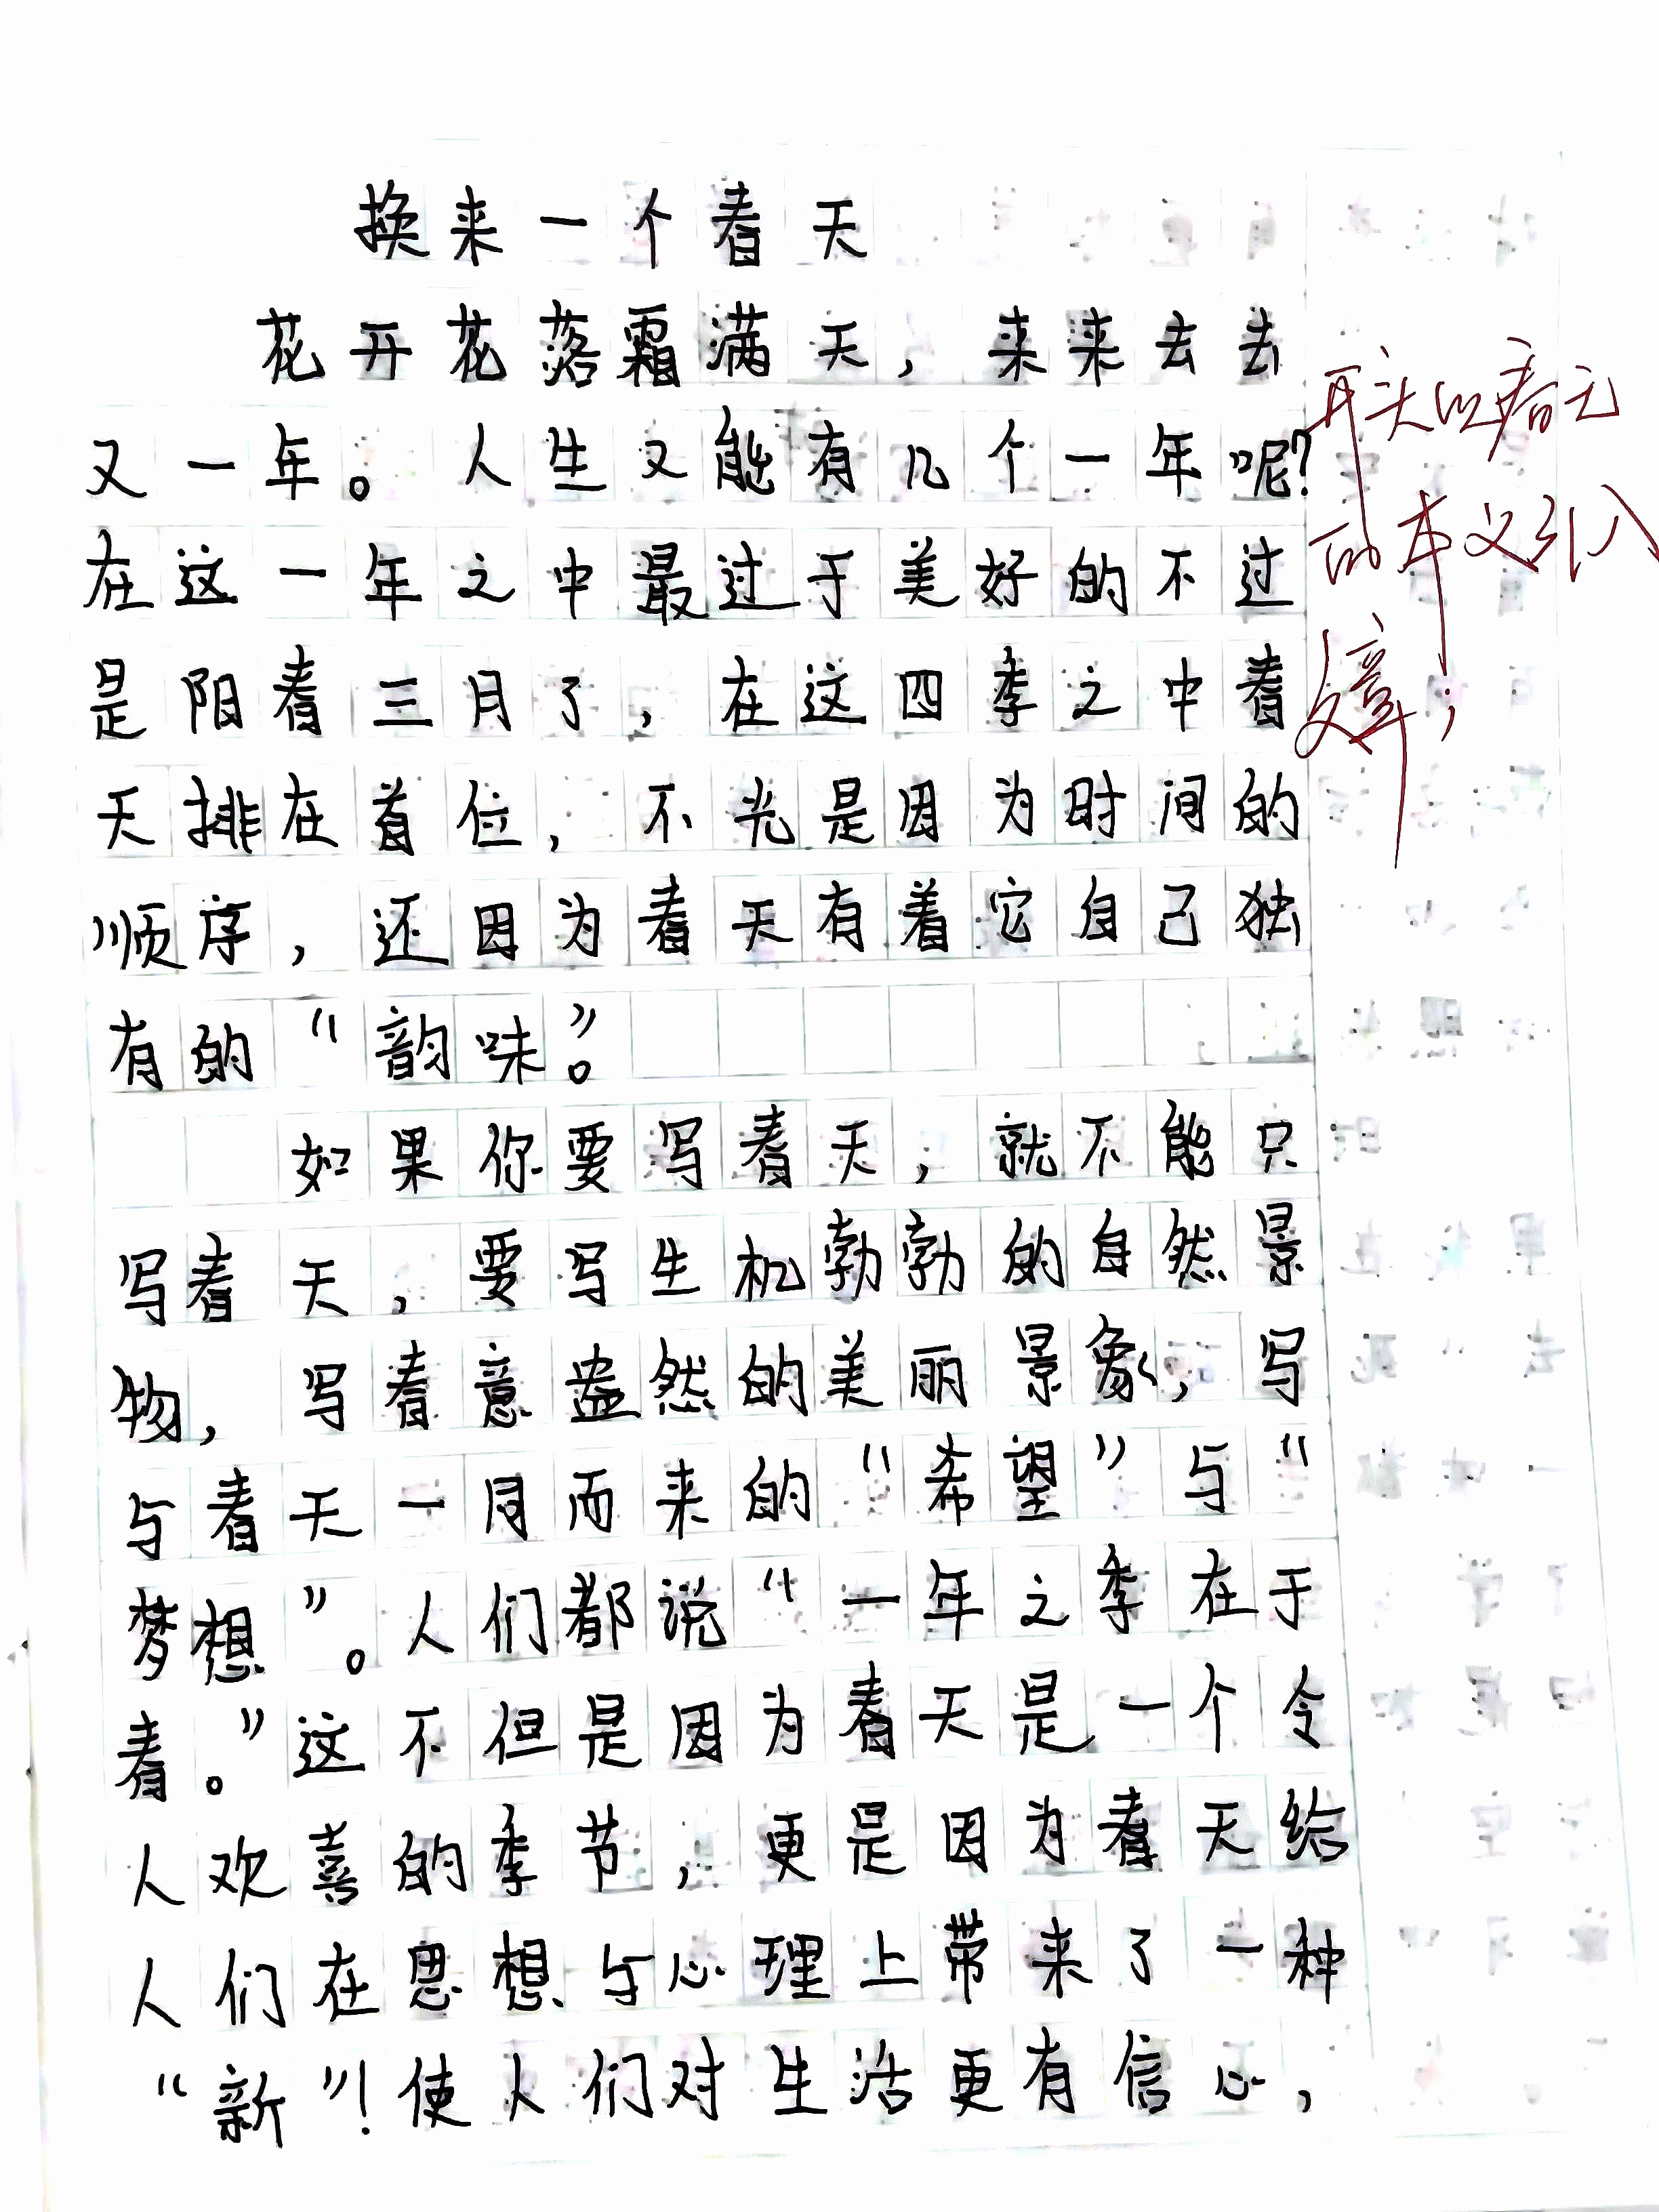 换来一个春天
花开花落霜满天，来来去去
又一年。人生又能有几个一年呢？
在这一年之中最过于美好的不过
是阳春三月了，在这四季之中春
天排在首位，不光是因为时间的
顺序，还因为春天有着它自己独
有的“韵味”。
如果你要写春天，就不能只
写春天，要写生机勃勃的自然景
物，写春意盎然的美丽景象，写
与春天一同而来的“希望”与“
梦想”。人们都说“一年之季在于
春。”这不但是因为春天是一个令
人欢喜的季节，更是因为春天给
人们在思想与心理上带来了一种
“新”！使人们对生活更有信心，
开头以春天
的本义引入
文章；